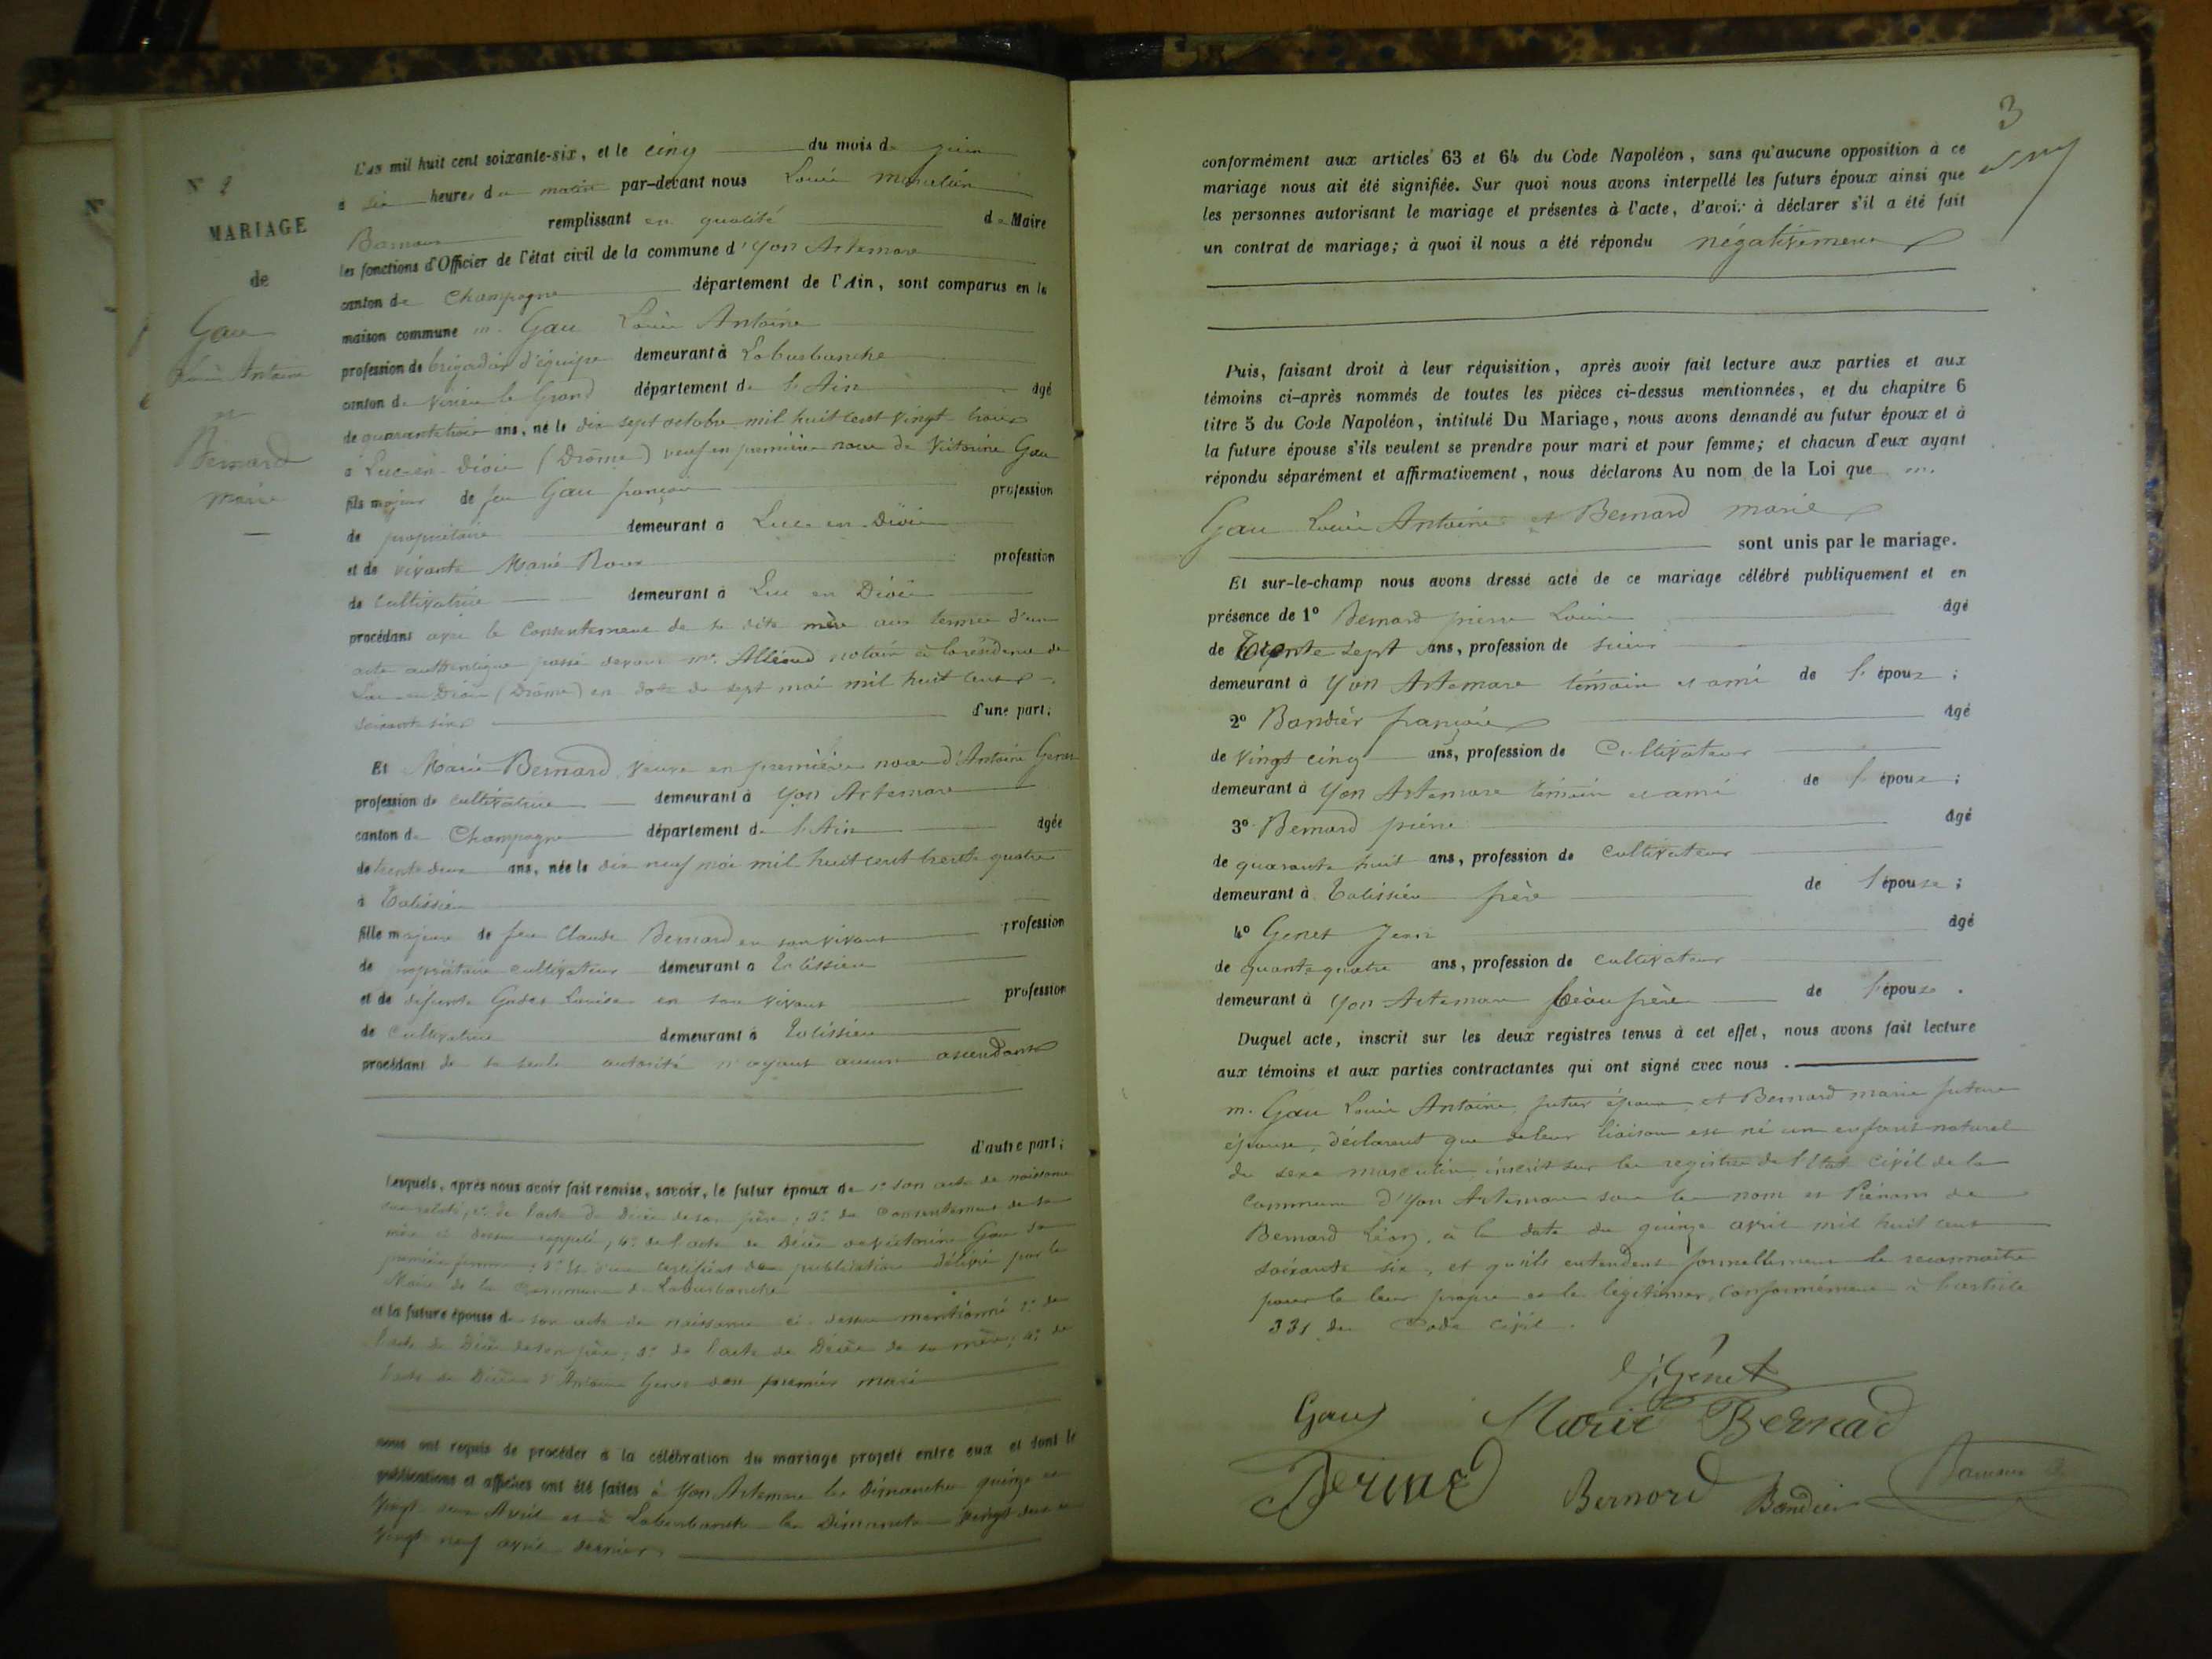 N° 2
MARIAGE
de
Gau
Louis Antoine
et
Bernard
marie
L'an mil huit cent soixante-six, et le cinq du mois de juin
à six heures du matin par-devant nous Louis
remplissant en qualité de Maire
les fonctions d'Officier de l'état civil de la commune d'Yon Artemare
canton de Champagne département de l'Ain, sont comparus en la
maison commune m. Gau Louis Antoine
profession de brigadier d'équipe demeurant à Laburbanche
canton de Virieu le Grand département de l'Ain âgé
de quarante deux ans, né le dix sept octobre mil huit cent vingt trois
à Luc-en-Diois (Drôme) veuf en première noce de Victorine Gau
fils majeur de feu Gau françois profession
de propriétaire demeurant à Luc en Diois
et de vivante Marie Roux profession
de Cultivatrice demeurant à Luc en Diois
procédant avec le Consentement de sa dite mère aux termes d'un
acte authentique passé devant me notaire à la résidence de
Luc en Diois (Drôme) en date du sept mai mil huit cent
soixante six d'une part;
Et Marie Bernard veuve en première noce d'Antoine Genet
profession de cultivatrice demeurant à Yon Artemare
canton de Champagne département de l'Ain âgée
de trente deux ans, née le dix neuf mai mil huit cent trente quatre
à Talissieu
fille majeure de feu Claude Bernard en son vivant profession
de propriétaire cultivateur demeurant à Talissieu
et de défunte Louise en son vivant profession
de Cultivatrice demeurant à Talissieu
procédant de sa seule autorité n'ayant aucun ascendant
d'autre part;
Lesquels, après nous avoir fait remise, savoir, le futur époux de 1° son acte de naissance
2° de l'acte de Décès de son père; 3° du Consentement de sa
mère ci dessus rappelé, 4° de l'acte de Décès de Victorine Gau sa
première femme; 5° Et d'un certificat de publication délivré par le
Maire de la Commune de Laburbanche
et la future épouse de son acte de naissance ci-dessus mentionné 2° de
l'acte de Décès de son père; 3° de l'acte de Décès de sa mère; 4° de
l'acte de Décès d'Antoine Genet son premier mari
nous ont requis de procéder à la célébration du mariage projeté entre eux et dont les
publications et affiches ont été faites à Yon Artemare les Dimanches quinze et
vingt deux Avril et à Laburbanche les Dimanches vingt deux et
vingt neuf avril dernier
3
conformément aux articles 63 et 64 du Code Napoléon, sans qu'aucune opposition à ce
mariage nous ait été signifiée. Sur quoi nous avons interpellé les futurs époux ainsi que
les personnes autorisant le mariage et présentes à l'acte, d'avoir à déclarer s'il a été fait
un contrat de mariage; à quoi il nous a été répondu négativement
Puis, faisant droit à leur réquisition, après avoir fait lecture aux parties et aux
témoins ci-après nommés de toutes les pièces ci-dessus mentionnées, et du chapitre 6
titre 5 du Code Napoléon, intitulé Du Mariage, nous avons demandé au futur époux et à
la future épouse s'ils veulent se prendre pour mari et pour femme; et chacun d'eux ayant
répondu séparément et affirmativement, nous déclarons Au nom de la Loi que m.
Gau Louis Antoine et Bernard marie
sont unis par le mariage.
Et sur-le-champ nous avons dressé acte de ce mariage célébré publiquement et en
présence de 1° Bernard pierre Louis âgé
de Trente sept ans, profession de
demeurant à Yon Artemare témoin et ami de l'époux;
2° Bandier françois âgé
de vingt cinq ans, profession de Cultivateur
demeurant à Yon Artemare témoin et ami de l'époux;
3° Bernard pierre âgé
de quarante huit ans, profession de Cultivateur
demeurant à Talissieu frère de l'épouse;
4° Genet Jean âgé
de quante quatre ans, profession de Cultivateur
demeurant à Yon Artemare beau frère de l'épouse.
Duquel acte, inscrit sur les deux registres tenus à cet effet, nous avons fait lecture
aux témoins et aux parties contractantes qui ont signé avec nous.
m. Gau Louis Antoine, futur époux, et Bernard marie future
épouse, déclarent que de leur liaison est né un enfant naturel
du sexe masculin inscrit sur les registres de l'Etat civil de la
Commune d'Yon Artemare sous les nom et Prénoms de
Bernard Léon, à la date du quinze avril mil huit cent
soixante six, et qu'ils entendent formellement le reconnaitre
pour le leur propre et le légitimer, Conformément à l'article
331 du Code Civil.
J. Genet
Gau Marie Bernad
Bernard Bandier